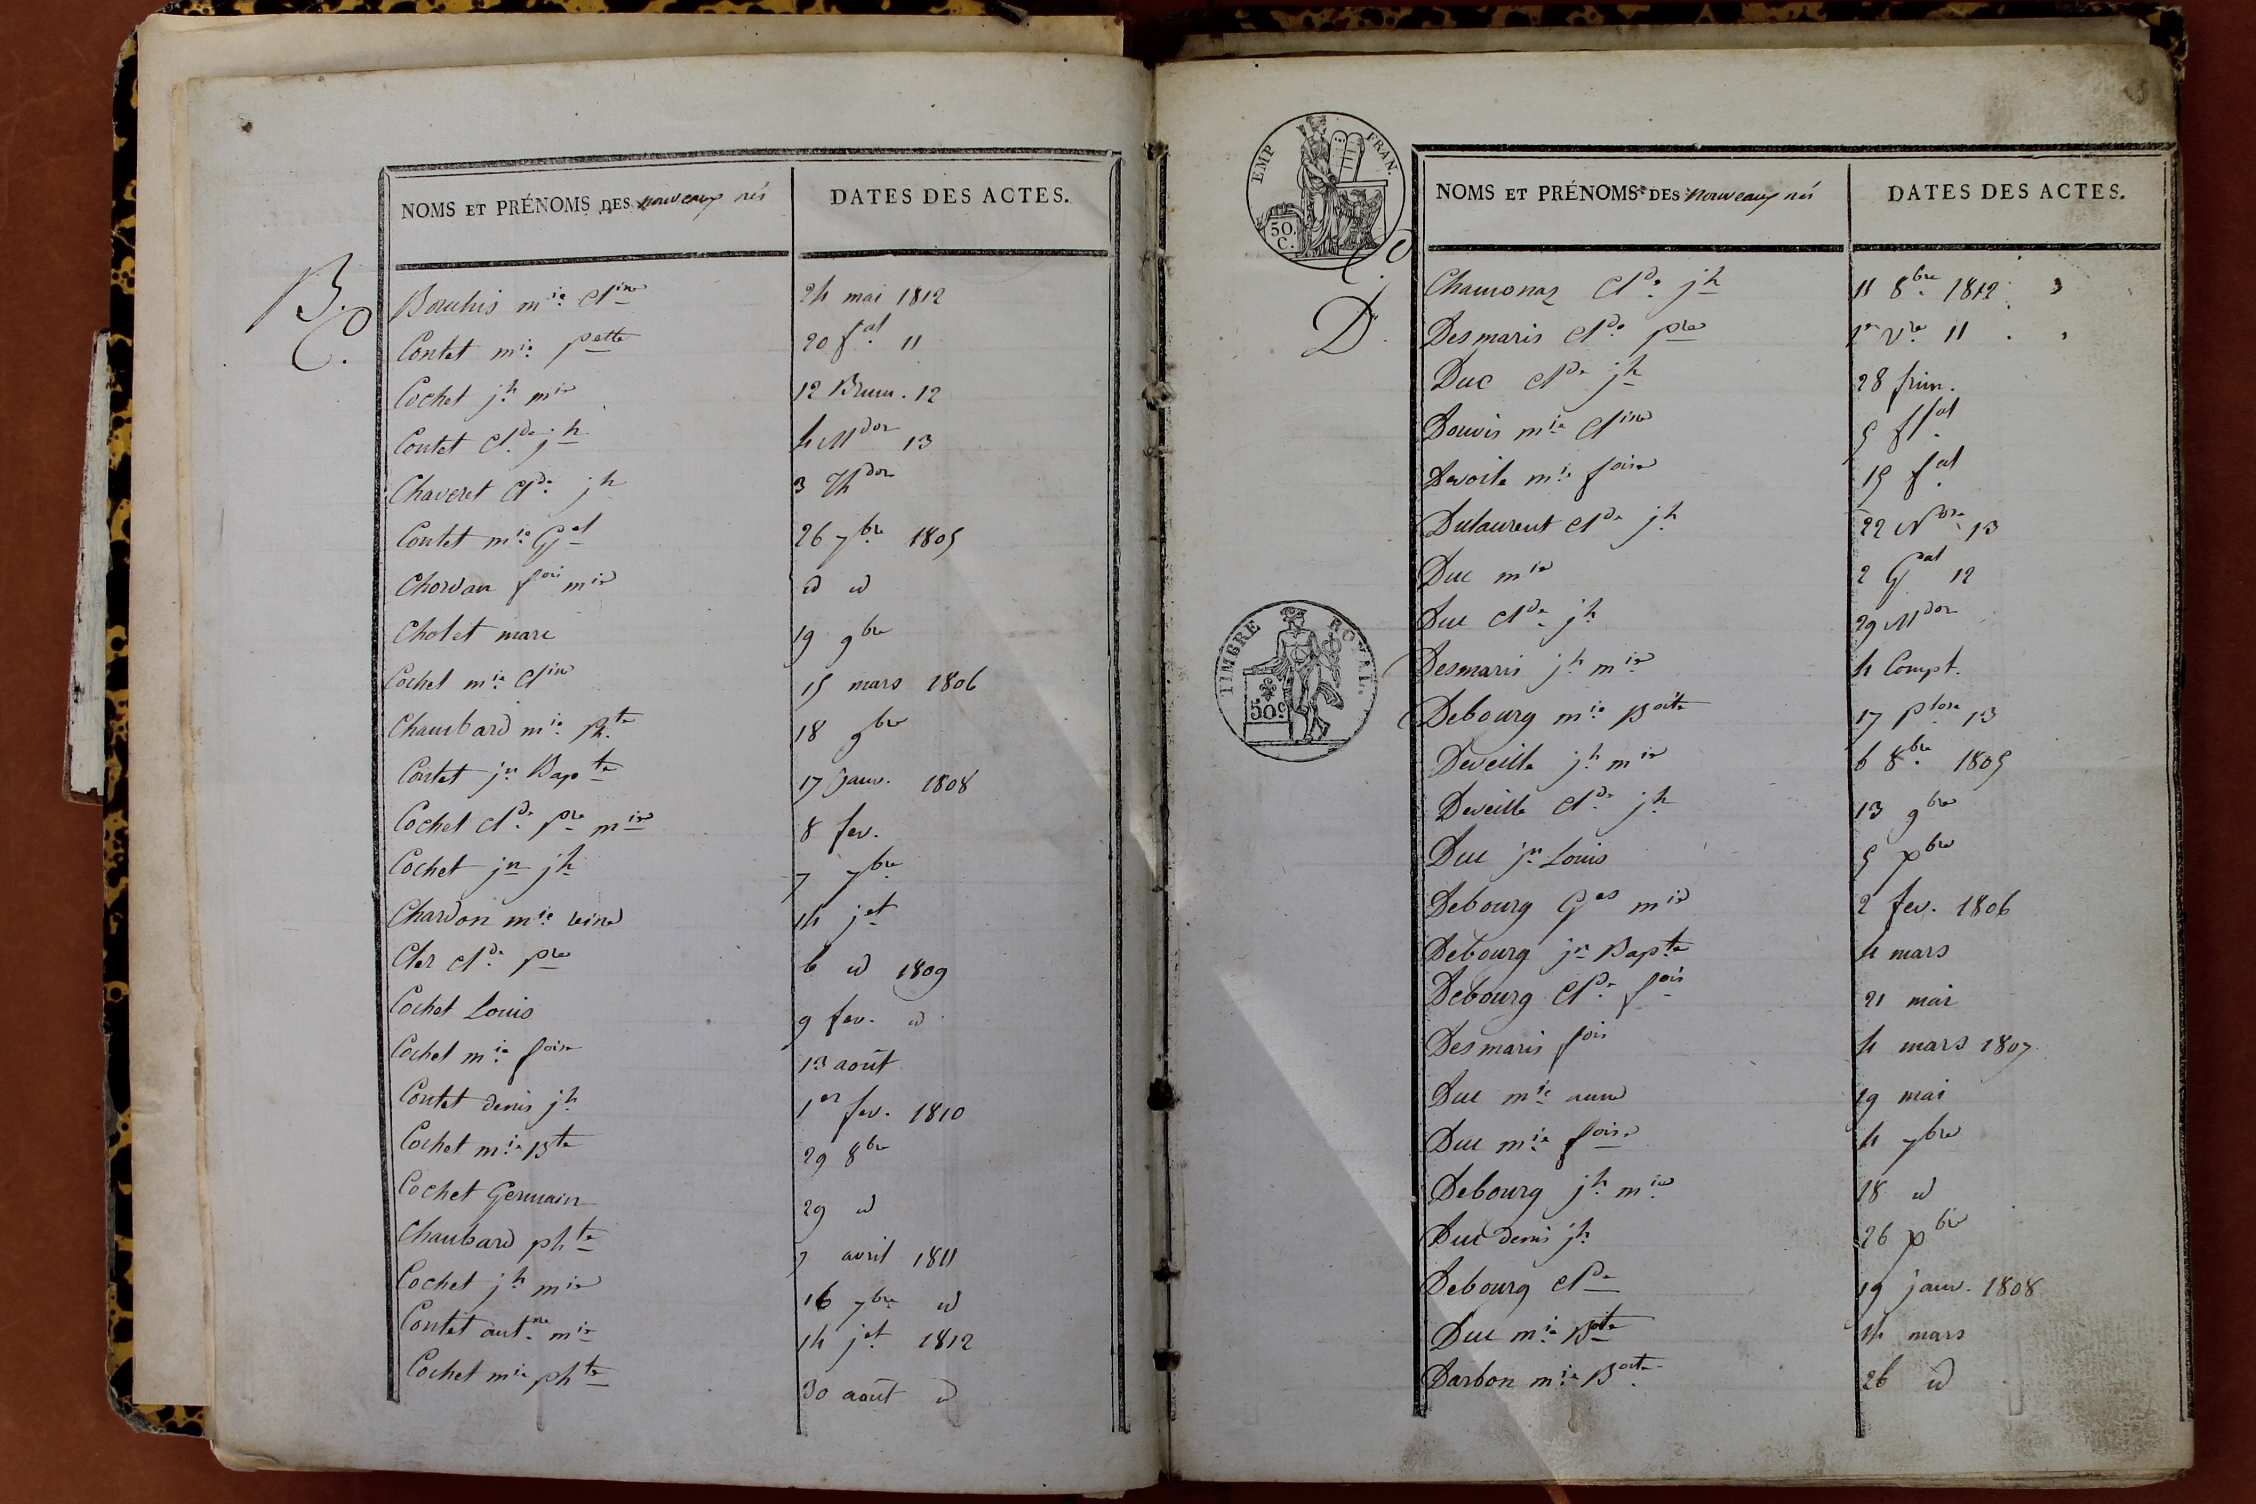 NOMS ET PRÉNOMS DES nouveaux nés
DATES DES ACTES.
B.
Bouchis mie Cline 24 mai 1812
C.
Contet mie pette 20 fal 11
Cochet jh mie 12 Brum. 12
Contet Cde jh 4 Mdor 13
Chaveret Clde jh 3 Thdor
Contet mie Gal 26 7bre 1805
Chordan fois mie id id
Cholet marc 19 9bre
Cochet mie Cline 15 mars 1806
Chambard mie Phte 18 9bre
Contet jn Bapte 17 Janv. 1808
Cochet Clde pre mie 8 fev.
Cochet jn jh 7 7bre
Chardon mie reine 14 jet
Cler Clde pre 6 id 1809
Cochet Louis 9 fev. id
Cochet mie foise 13 août
Contet denis jh 1er fev. 1810
Cochet mie Bte 29 8bre
Cochet Germain 29 id
Chambard phte 7 avril 1811
Cochet jh mie 16 7bre id
Contet antne mie 14 jet 1812
Cochet mie phte 30 août id
EMP. FRAN.
50.
C.
NOMS ET PRÉNOMS DES nouveaux nés
DATES DES ACTES.
C.
Chamonaz Clde jh 11 8bre 1812
D.
Desmaris Clde pre 1er Vre 11
Duc Clde jh 28 frim.
Douvis mie Cline 5 ffal
Devoile mie foise 15 fal
Dulaurent Clde jh 22 Nose 13
Duc mie 2 Gal 12
Duc Clde jh 29 Mdor
TIMBRE ROYAL.
50c
Desmaris jh mie 4 Compt.
Debourg mie Boite 17 plose 13
Deveille jh mie 6 8bre 1805
Deveille Clde jh 13 9bre
Duc jn Louis 5 xbre
Debourg Ges mie 2 fev. 1806
Debourg jn Bapte 4 mars
Debourg Clde fois 21 mai
Desmaris fois 4 mars 1807
Duc mie anne 19 mai
Duc mie foise 4 7bre
Debourg jh mie 18 id
Duc denis jh 26 xbre
Debourg Clde 19 janv. 1808
Duc mie Boite 14 mars
Darbon mie Boite 26 id